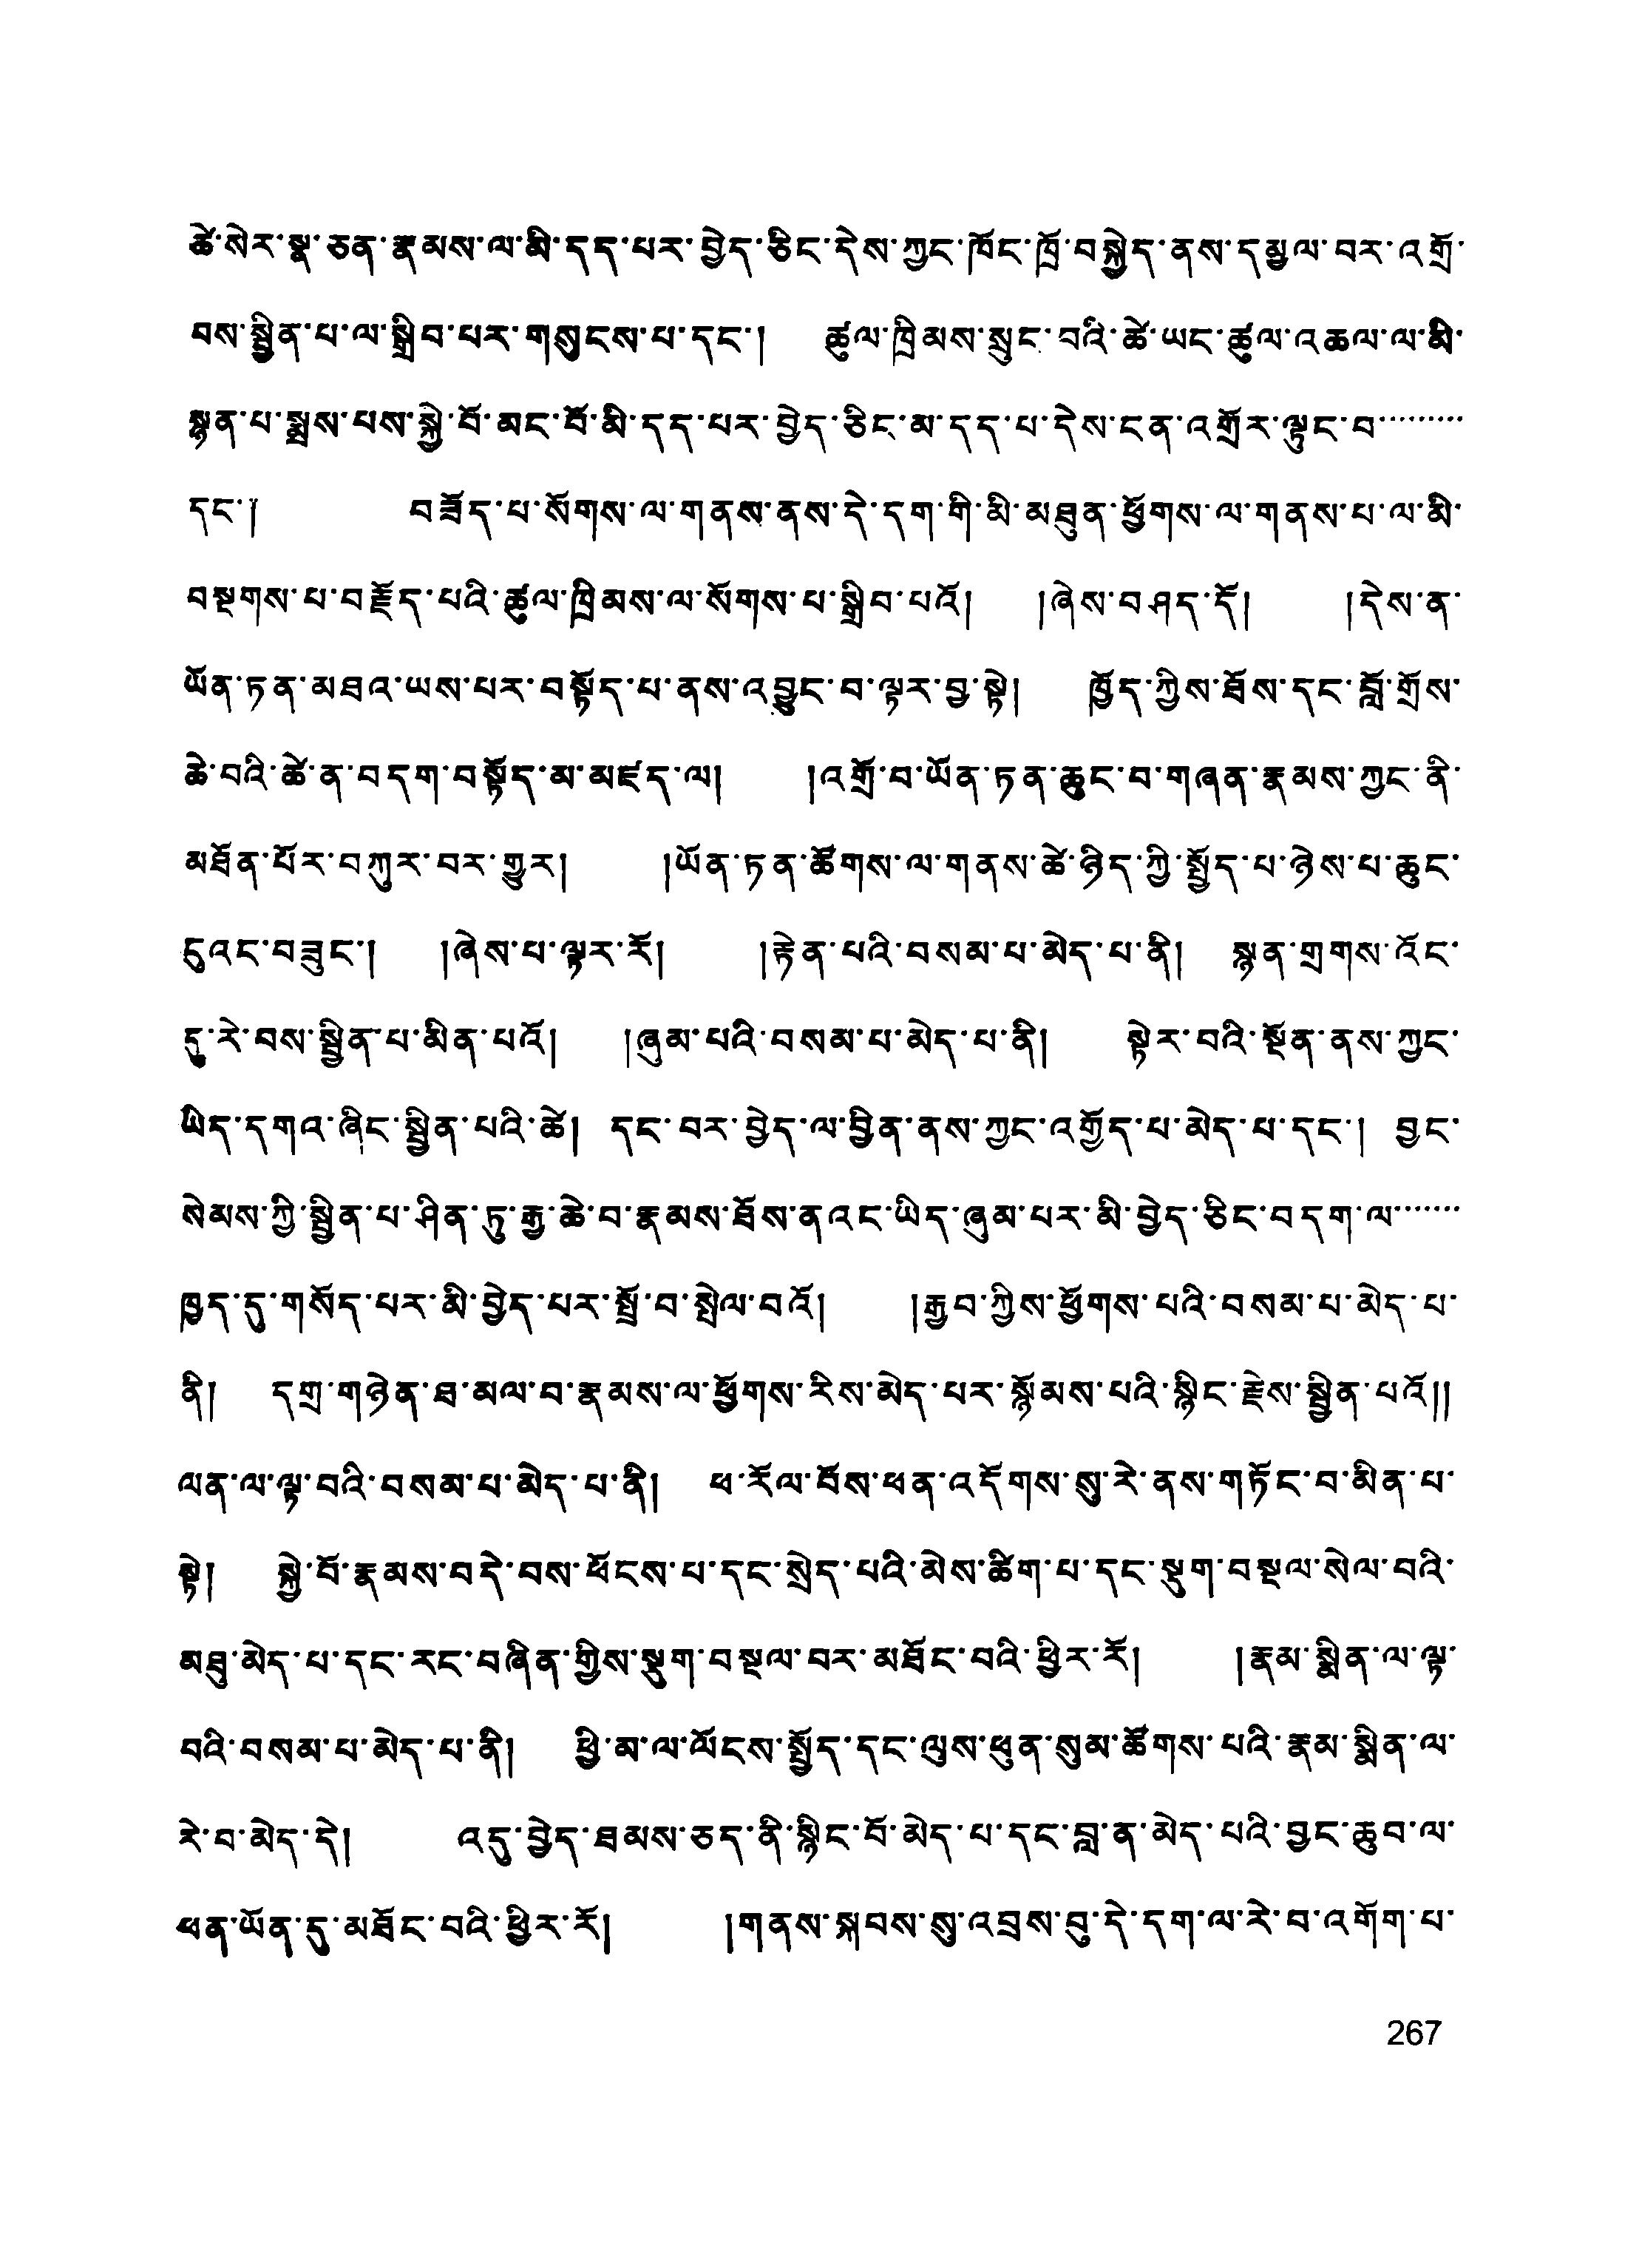 ཚེ་སེར་སྣ་ཅན་རྣམས་ལ་མི་དད་པར་བྱེད་ཅིང་དེས་ཀྱང་ཁོང་ཁྲོ་བསྐྱེད་ནས་དམྱལ་བར་འགྲོ་
བས་སྦྱིན་པ་ལ་སྒྲིབ་པར་གསུངས་པ་དང་།  ཚུལ་ཁྲིམས་སྲུང་བའི་ཚེ་ཡང་ཚུལ་འཆལ་ལ་མི་
སྙན་པ་སྨྲས་པས་སྐྱེ་བོ་མང་པོ་མི་དད་པར་བྱེད་ཅིང་མ་དད་པ་དེས་ངན་འགྲོར་ལྟུང་བ་་་་་་་་་
དང་།  བཟོད་པ་སོགས་ལ་གནས་ནས་དེ་དག་གི་མི་མཐུན་ཕྱོགས་ལ་གནས་པ་ལ་མི་
བསྔགས་པ་བརྗོད་པའི་ཚུལ་ཁྲིམས་ལ་སོགས་པ་སྒྲིབ་པའོ།  །ཞེས་བཤད་དོ།  །དེས་ན་
ཡོན་ཏན་མཐའ་ཡས་པར་བསྟོད་པ་ནས་འབྱུང་བ་ལྟར་བྱ་སྟེ།  ཁྱོད་ཀྱིས་ཐོས་དང་བློ་གྲོས་
ཆེ་བའི་ཚེ་ན་བདག་བསྟོད་མ་མཛད་ལ།  །འགྲོ་བ་ཡོན་ཏན་ཆུང་བ་གཞན་རྣམས་ཀྱང་ནི་
མཐོན་པོར་བཀུར་བར་གྱུར།  །ཡོན་ཏན་ཚོགས་ལ་གནས་ཚེ་ཉིད་ཀྱི་སྤྱོད་པ་ཉེས་པ་ཆུང་
ངུའང་བཟུང་།  །ཞེས་པ་ལྟར་རོ།  །རྟེན་པའི་བསམ་པ་མེད་པ་ནི།  སྙན་གྲགས་འོང་
དུ་རེ་བས་སྦྱིན་པ་མིན་པའོ།  །ཞུམ་པའི་བསམ་པ་མེད་པ་ནི།  སྟེར་བའི་སྔོན་ནས་ཀྱང་
ཡིད་དགའ་ཞིང་སྦྱིན་པའི་ཚེ།  དང་བར་བྱེད་ལ་བྱིན་ནས་ཀྱང་འགྱོད་པ་མེད་པ་དང་།  བྱང་
སེམས་ཀྱི་སྦྱིན་པ་ཤིན་ཏུ་རྒྱ་ཆེ་བ་རྣམས་ཐོས་ནའང་ཡིད་ཞུམ་པར་མི་བྱེད་ཅིང་བདག་ལ་་་་་་་
ཁྱད་དུ་གསོད་པར་མི་བྱེད་པར་སྤྲོ་བ་སྤེལ་བའོ།  །རྒྱབ་ཀྱིས་ཕྱོགས་པའི་བསམ་པ་མེད་པ་
ནི།  དགྲ་གཉེན་ཐ་མལ་བ་རྣམས་ལ་ཕྱོགས་རིས་མེད་པར་སྙོམས་པའི་སྙིང་རྗེས་སྦྱིན་པའོ།།
ལན་ལ་ལྟ་བའི་བསམ་པ་མེད་པ་ནི།  ཕ་རོལ་པོས་ཕན་འདོགས་སུ་རེ་ནས་གཏོང་བ་མིན་པ་
སྟེ།  སྐྱེ་བོ་རྣམས་བདེ་བས་ཕོངས་པ་དང་སྲེད་པའི་མེས་ཚིག་པ་དང་སྡུག་བསྔལ་སེལ་བའི་
མཐུ་མེད་པ་དང་རང་བཞིན་གྱིས་སྡུག་བསྔལ་བར་མཐོང་བའི་ཕྱིར་རོ།  །རྣམ་སྨིན་ལ་ལྟ་
བའི་བསམ་པ་མེད་པ་ནི།  ཕྱི་མ་ལ་ལོངས་སྤྱོད་དང་ལུས་ཕུན་སུམ་ཚོགས་པའི་རྣམ་སྨིན་ལ་
རེ་བ་མེད་དེ།  འདུ་བྱེད་ཐམས་ཅད་ནི་སྙིང་པོ་མེད་པ་དང་བླ་ན་མེད་པའི་བྱང་ཆུབ་ལ་
ཕན་ཡོན་དུ་མཐོང་བའི་ཕྱིར་རོ།  །གནས་སྐབས་སུ་འབྲས་བུ་དེ་དག་ལ་རེ་བ་འགོག་པ་
267